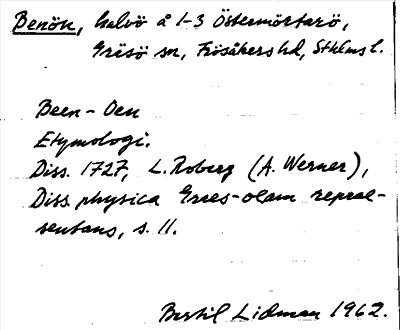 Benön, halvö å 1-3 Östermörtarö,
Gräsö sn, Frösåkers hd, Sthlms l.
Been-Oen
Etymologi.
Diss. 1727, L. Roberg (A. Werner),
Diss. physica Grees-ölam reprae-
sentans, s. 11.
Bertil Lidman 1962.